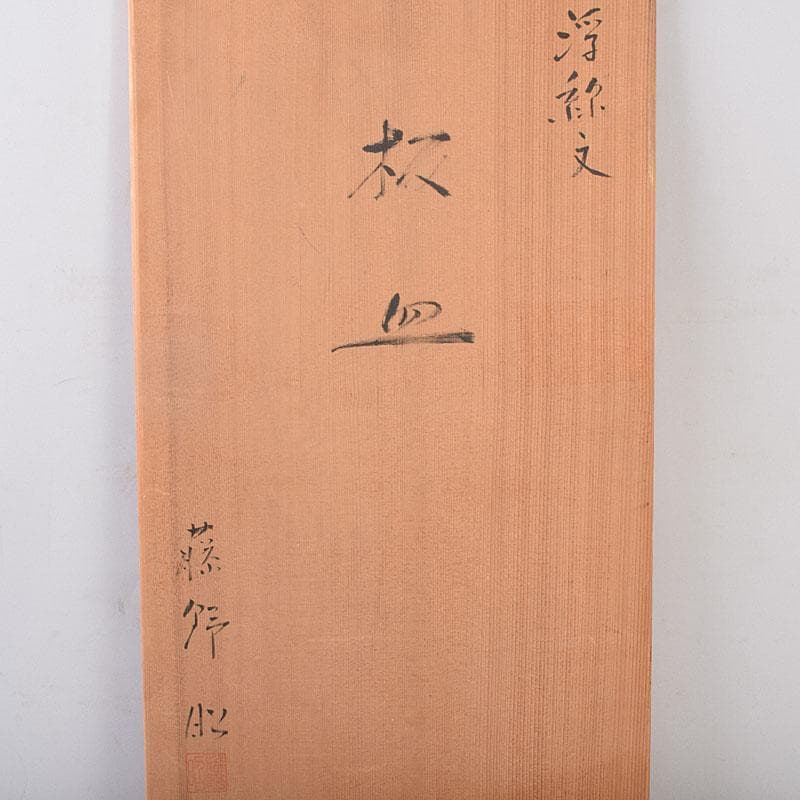 浮線文
板
皿
藤野